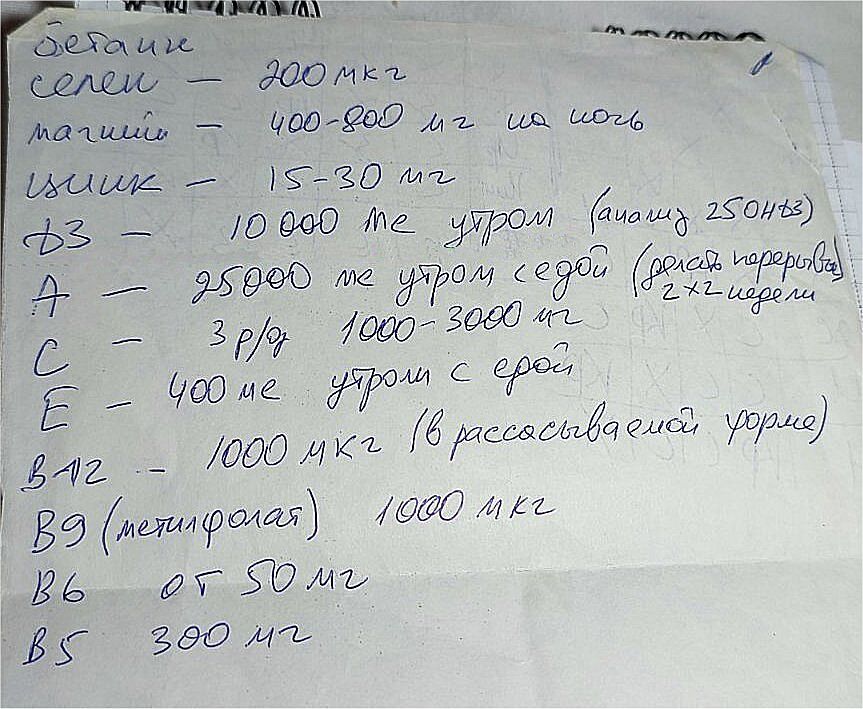 бетаин
селен — 200 мкг
магний — 400-800 мг на ночь
цинк — 15-30 мг
D3 — 10 000 ме утром (анализ 25OHD3)
А — 25000 ме утром с едой (делать перерывы)
2 х 2 недели
С — 3 р/д 1000-3000 мг
Е — 400 ме утром с едой
В12 — 1000 мкг (в рассасываемой форме)
В9 (метилфолат) 1000 мкг
В6 от 50 мг
В5 300 мг